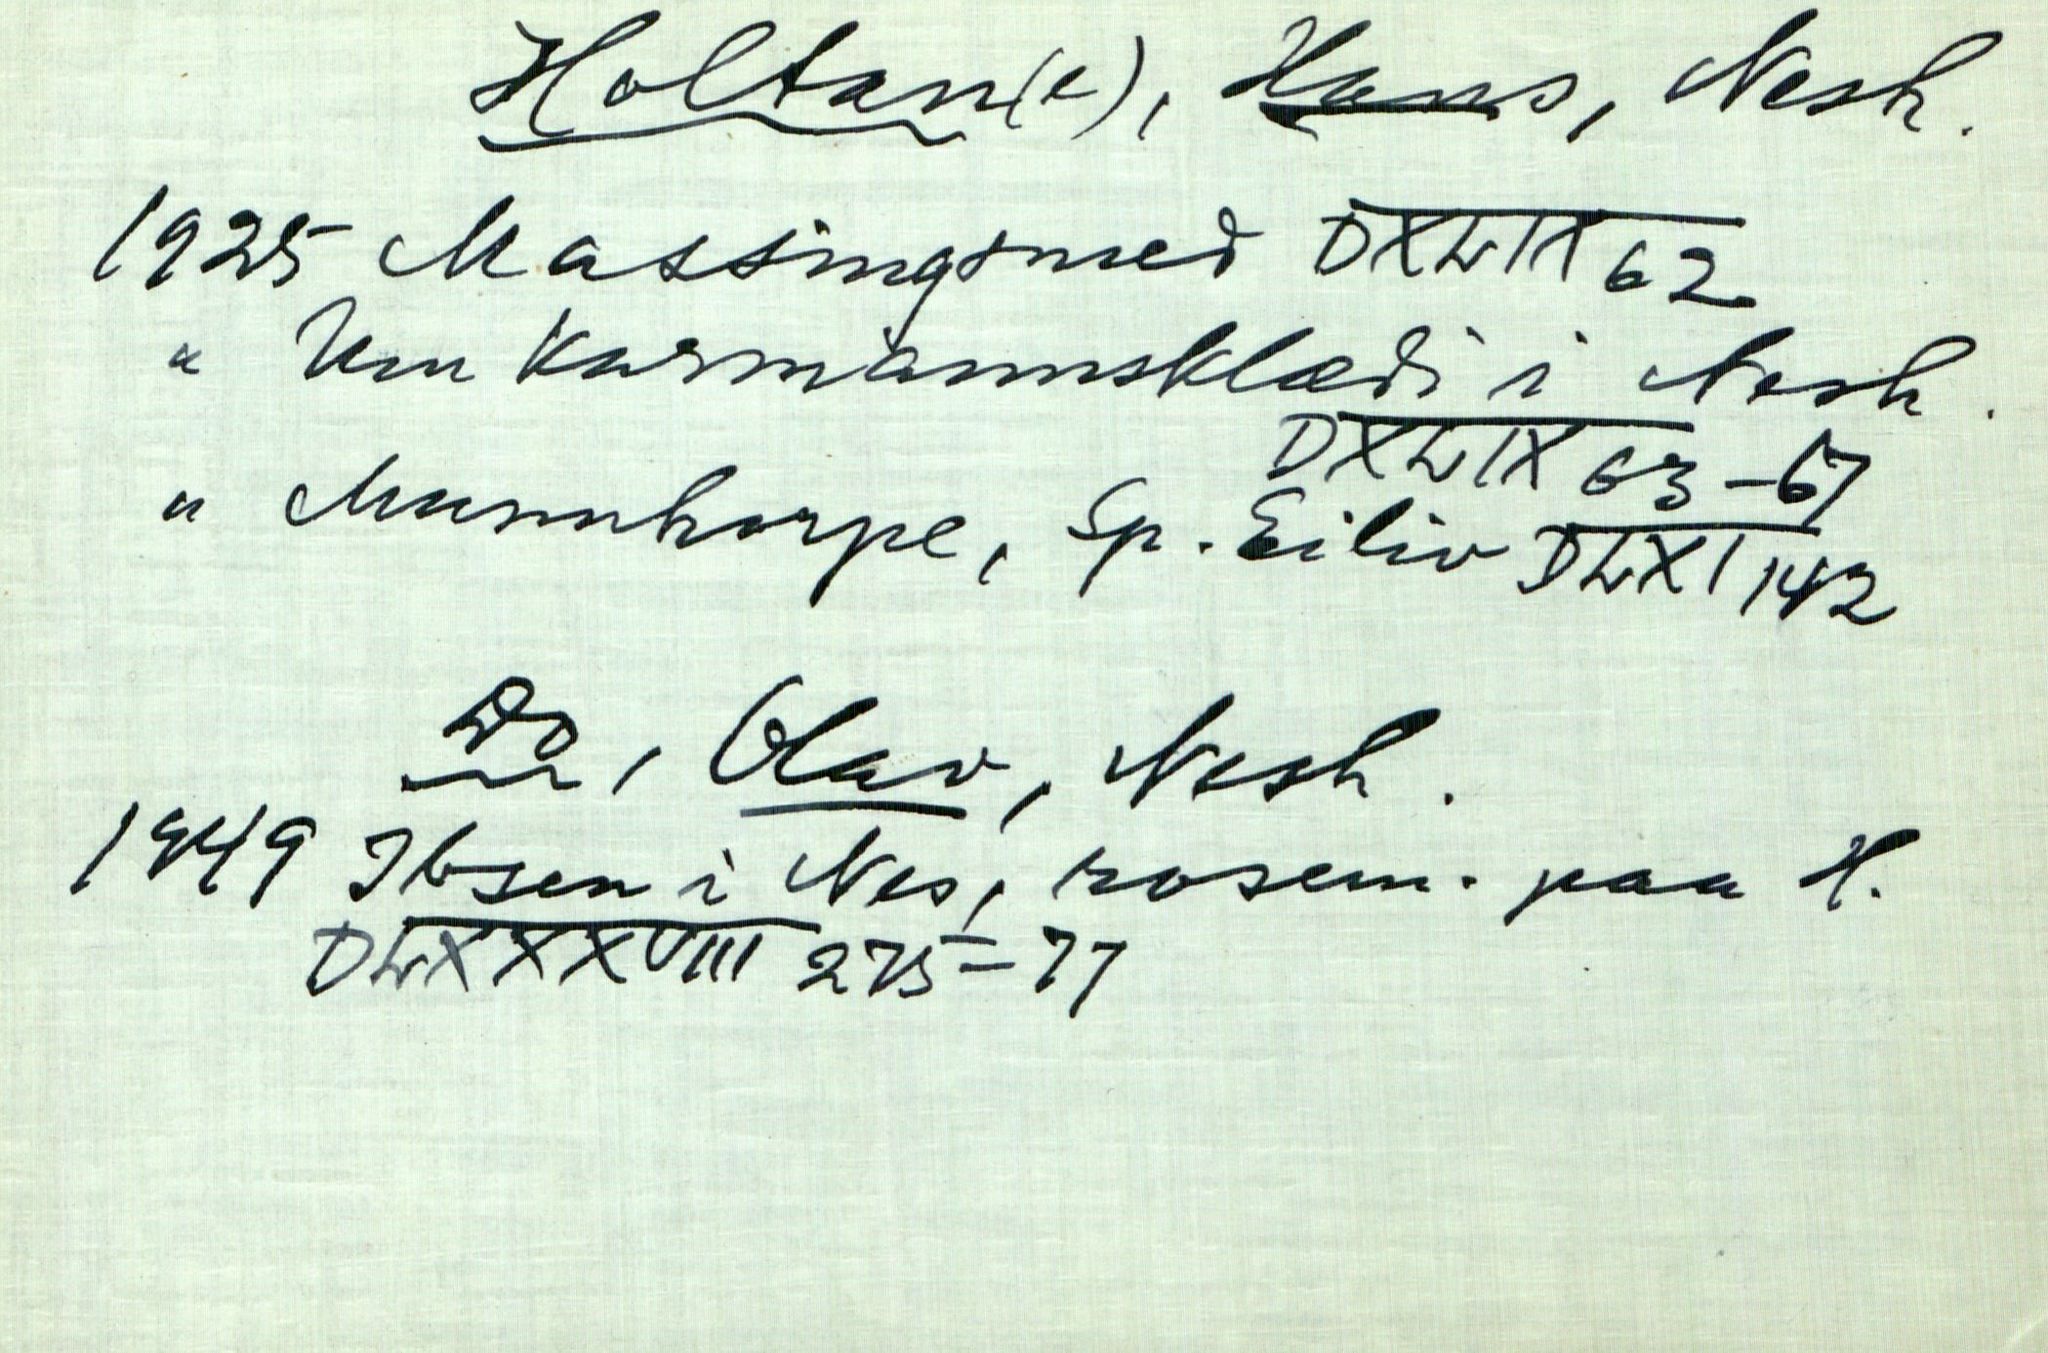 Holtan(e), Hans, Nesh.
1925 Massingsmed DXLIX 62
" Um Karmannsklædi i Nesh.
DXLIX 63-67
" Munnharpe, Sp. Eiliv DLXI 142
Do, Olav, Nesh.
1949 Ibsen i Nes, rosem. paa H.
DLXXXVIII 275-77